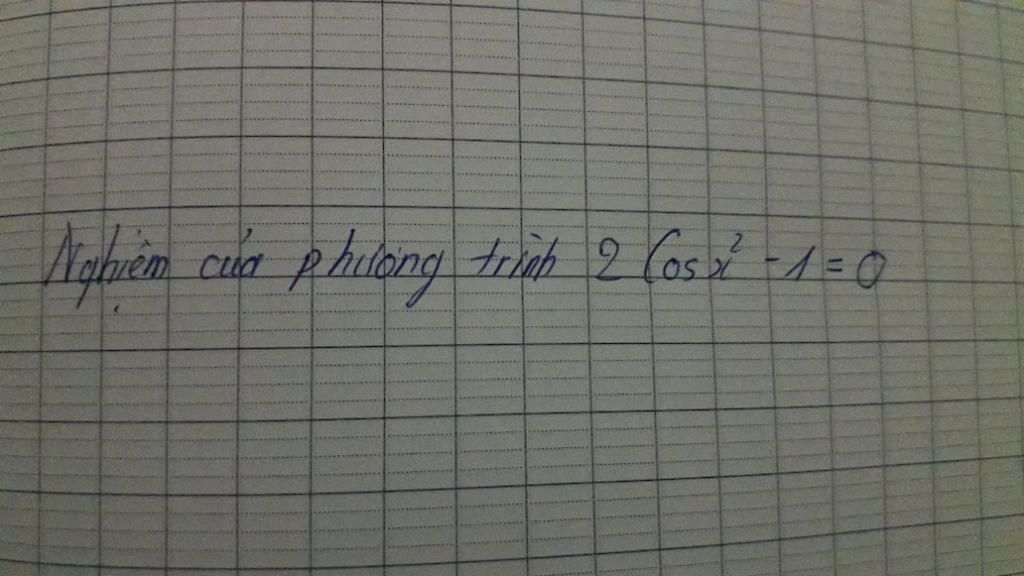 Nghiệm của phương trình 2 Cos x² - 1 = 0